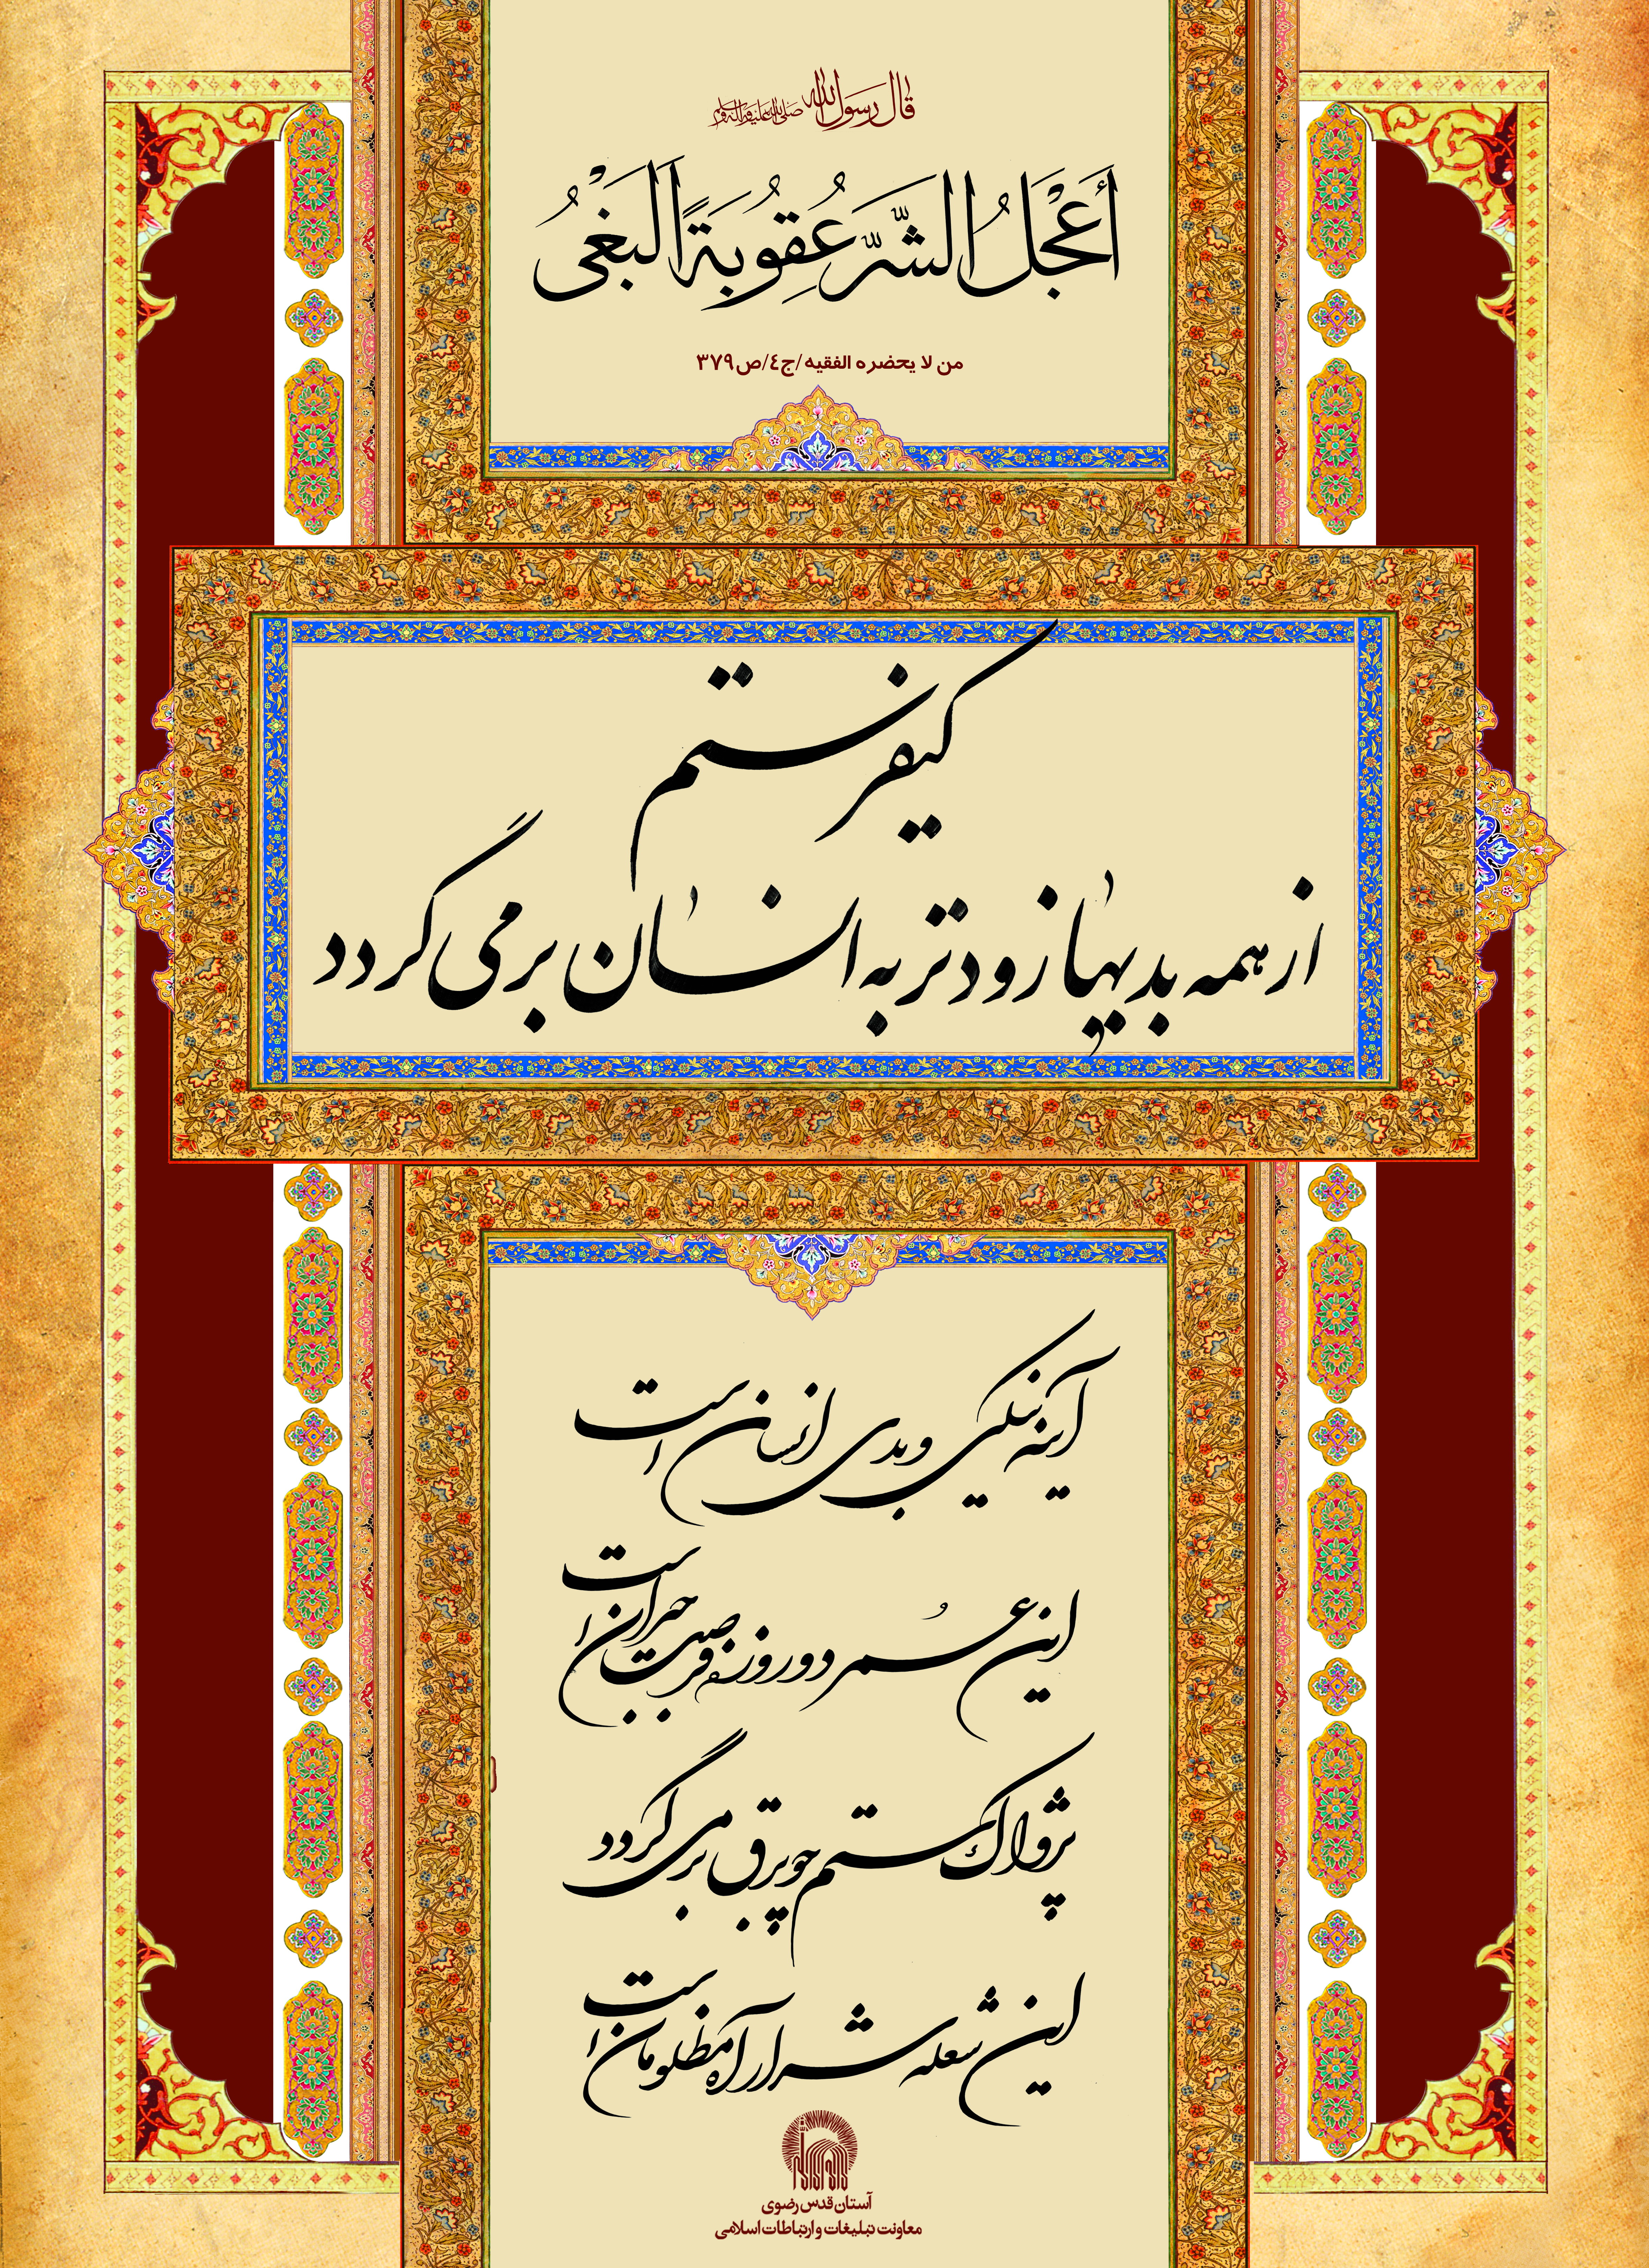 قال رسول الله صلی الله علیه و آله و سلم
أَعْجَلُ الشَّرِّ عُقُوبَةً الْبَغْیُ
من لا یحضره الفقیه/ج٤/ص۳۷۹
کیفر ستم
از همه بدیها زودتر به انسان برمی گردد
آینه نیکی و بدی انسان است
این عُمر دو روزه فرصت جبران است
پژواک ستم چو برق برمی گردد
این شعله شرار آه مظلومان است
آستان قدس رضوی
معاونت تبلیغات و ارتباطات اسلامی